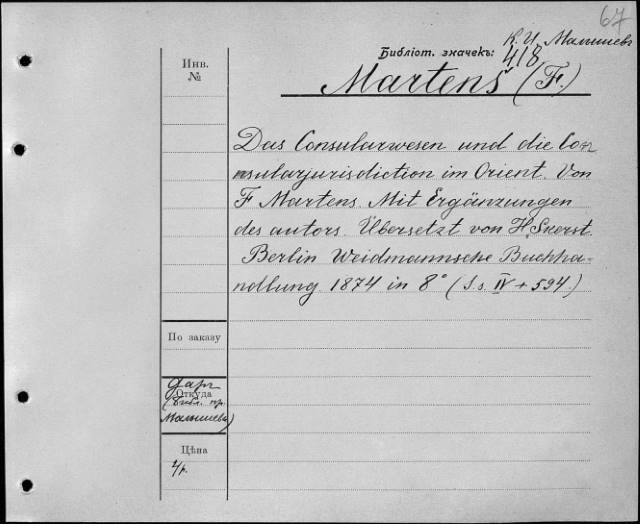 67
К. И. Малышевъ
Библіот. значекъ:
418
Инв.
№
Martens (F.)
Das Consularwesen und die Con
nsularjurisdiction im Orient. Von
F Martens. Mit Ergänzungen
des autors. Übersetzt von H. Skerst.
Berlin Weidmannsche Buchha-
ndlung 1874 in 8° (S.s. IV + 594.)
По заказу
Даръ
Откуда
(библ. пр.
Малышева)
Цѣна